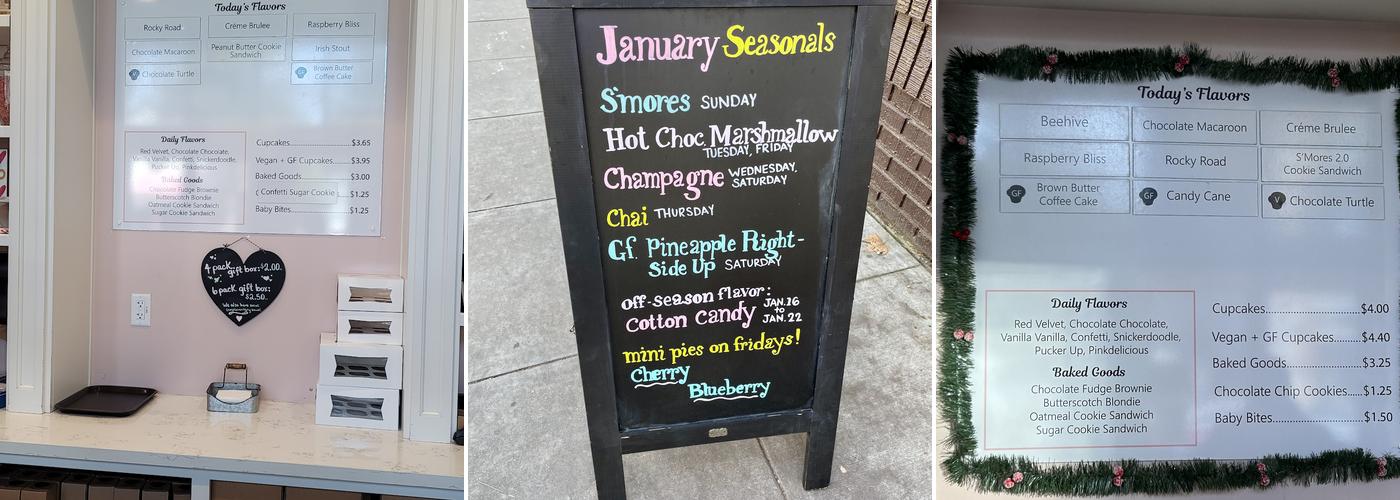 Today's Flavors
Rocky Road
Créme Brulee
Raspberry Bliss
Chocolate Macaroon
Peanut Butter Cookie
Sandwich
Irish Stout
V Chocolate Turtle
GF Brown Butter
Coffee Cake
Daily Flavors
Red Velvet, Chocolate Chocolate,
Vanilla Vanilla, Confetti, Snickerdoodle,
Pucker Up, Pinkdelicious
Baked Goods
Chocolate Fudge Brownie
Butterscotch Blondie
Oatmeal Cookie Sandwich
Sugar Cookie Sandwich
Cupcakes $3.65
Vegan + GF Cupcakes $3.95
Baked Goods $3.00
Confetti Sugar Cookie $1.25
Baby Bites $1.25
4 pack
gift box: $2.00
6 pack gift box:
$2.50
We also have
January Seasonals
S'mores SUNDAY
Hot Choc. Marshmallow
TUESDAY, FRIDAY
Champagne WEDNESDAY,
SATURDAY
Chai THURSDAY
Gf. Pineapple Right-
Side Up SATURDAY
off-season flavor:
Cotton Candy JAN.16
to
JAN.22
mini pies on fridays!
Cherry
Blueberry
Today's Flavors
Beehive
Chocolate Macaroon
Créme Brulee
Raspberry Bliss
Rocky Road
S'Mores 2.0
Cookie Sandwich
GF Brown Butter
Coffee Cake
GF Candy Cane
V Chocolate Turtle
Daily Flavors
Red Velvet, Chocolate Chocolate,
Vanilla Vanilla, Confetti, Snickerdoodle,
Pucker Up, Pinkdelicious
Baked Goods
Chocolate Fudge Brownie
Butterscotch Blondie
Oatmeal Cookie Sandwich
Sugar Cookie Sandwich
Cupcakes $4.00
Vegan + GF Cupcakes $4.40
Baked Goods $3.25
Chocolate Chip Cookies $1.25
Baby Bites $1.50